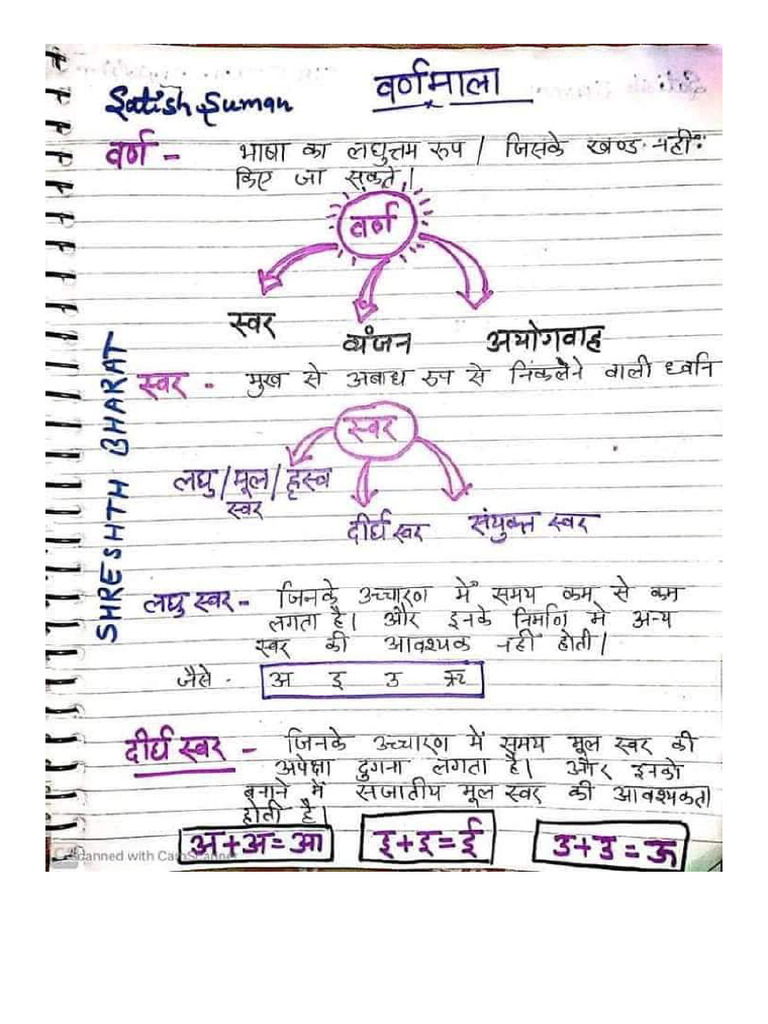 वर्णमाला
Satish Suman
वर्ण - भाषा का लघुत्तम रूप / जिसके खण्ड नहीं
किए जा सकते।
वर्ण
स्वर व्यंजन अयोगवाह
SHRESHTH BHARAT
स्वर - मुख से अबाध रुप से निकलने वाली ध्वनि
स्वर
लघु/मूल/हृस्व
स्वर
दीर्घ स्वर संयुक्त स्वर
लघु स्वर - जिनके उच्चारण में समय कम से कम
लगता है। और इनके निर्माण मे अन्य
स्वर की आवश्यक नहीं होती।
जैसे - अ इ उ ऋ
दीर्घ स्वर - जिनके उच्चारण में समय मूल स्वर की
अपेक्षा दुगना लगता है। और इनको
बनाने में सजातीय मूल स्वर की आवश्यकता
होती है।
अ+अ=आ इ+इ=ई उ+उ=ऊ
Scanned with CamScanner